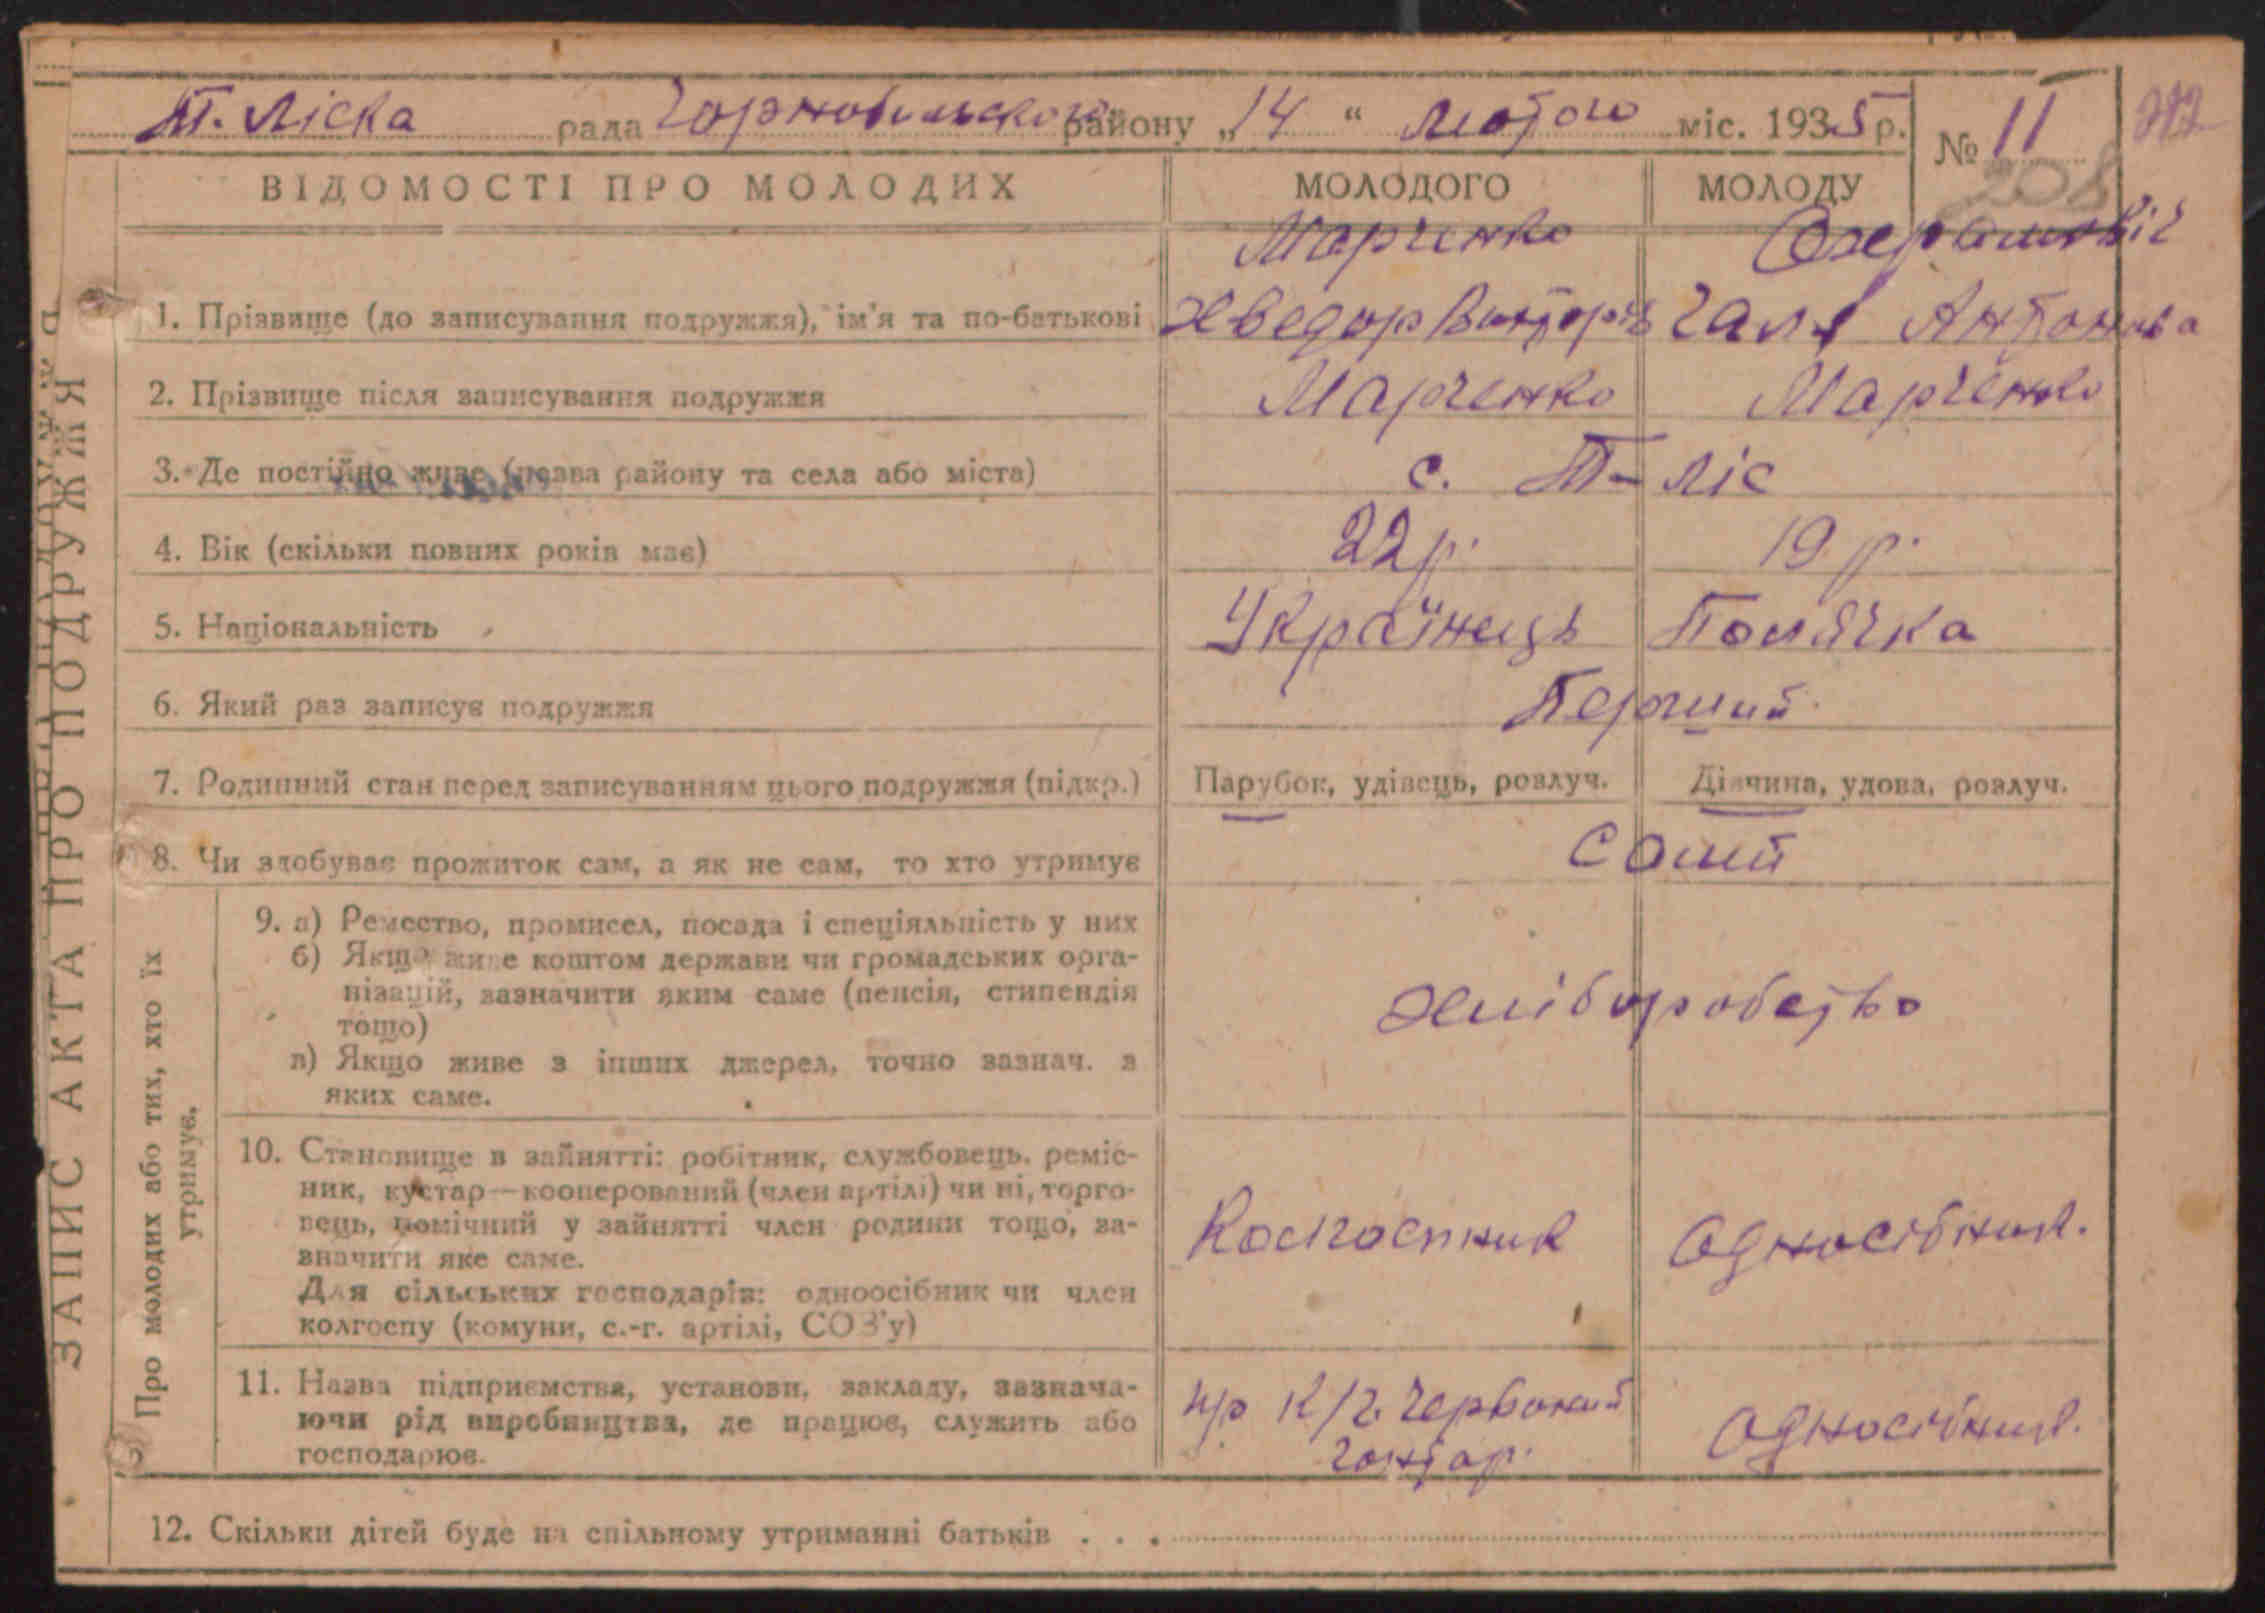 Т. Ліска рада Чорнобильского району „14“ лютого міс. 1935 р. № 11
212
208
ВІДОМОСТІ ПРО МОЛОДИХ МОЛОДОГО МОЛОДУ
Марченко
1. Прізвище (до записування подружжя), ім'я та по-батькові Хведор Вікторів Галя Антонова
2. Прізвище після записування подружжя Марченко Марченко
3. Де постійно живе (назва району та села або міста) с. Т-Ліс
4. Вік (скільки повних років має) 22 р. 19 р.
5. Національність Українець Полячка
6. Який раз записує подружжя Перший
7. Родинний стан перед записуванням цього подружжя (підкр.) Парубок, удівець, розлуч. Дівчина, удова, розлуч.
8. Чи здобуває прожиток сам, а як не сам, то хто утримує Самі
ЗАПИС АКТА ПРО ПОДРУЖЖЯ
Про молодих або тих, хто їх
утримує.
9. а) Ремество, промисел, посада і спеціяльність у них
б) Якщо живе коштом держави чи громадських орга-
нізацій, зазначити яким саме (пенсія, стипендія
тощо) Хліборобство
в) Якщо живе з інших джерел, точно зазнач. з
яких саме.
10. Становище в зайнятті: робітник, службовець, реміс-
ник, кустар—кооперований (член артілі) чи ні, торго-
вець, помічний у зайнятті член родини тощо, за-
значити яке саме. Колгоспник Односібник.
Для сільських господарів: одноосібник чи член
колгоспу (комуни, с.-г. артілі, СОЗ'у)
11. Назва підприємства, установи, закладу, зазнача- к/г. Червоний
ючи рід виробництва, де працює, служить або Односібник.
господарює.
12. Скільки дітей буде на спільному утриманні батьків . . .